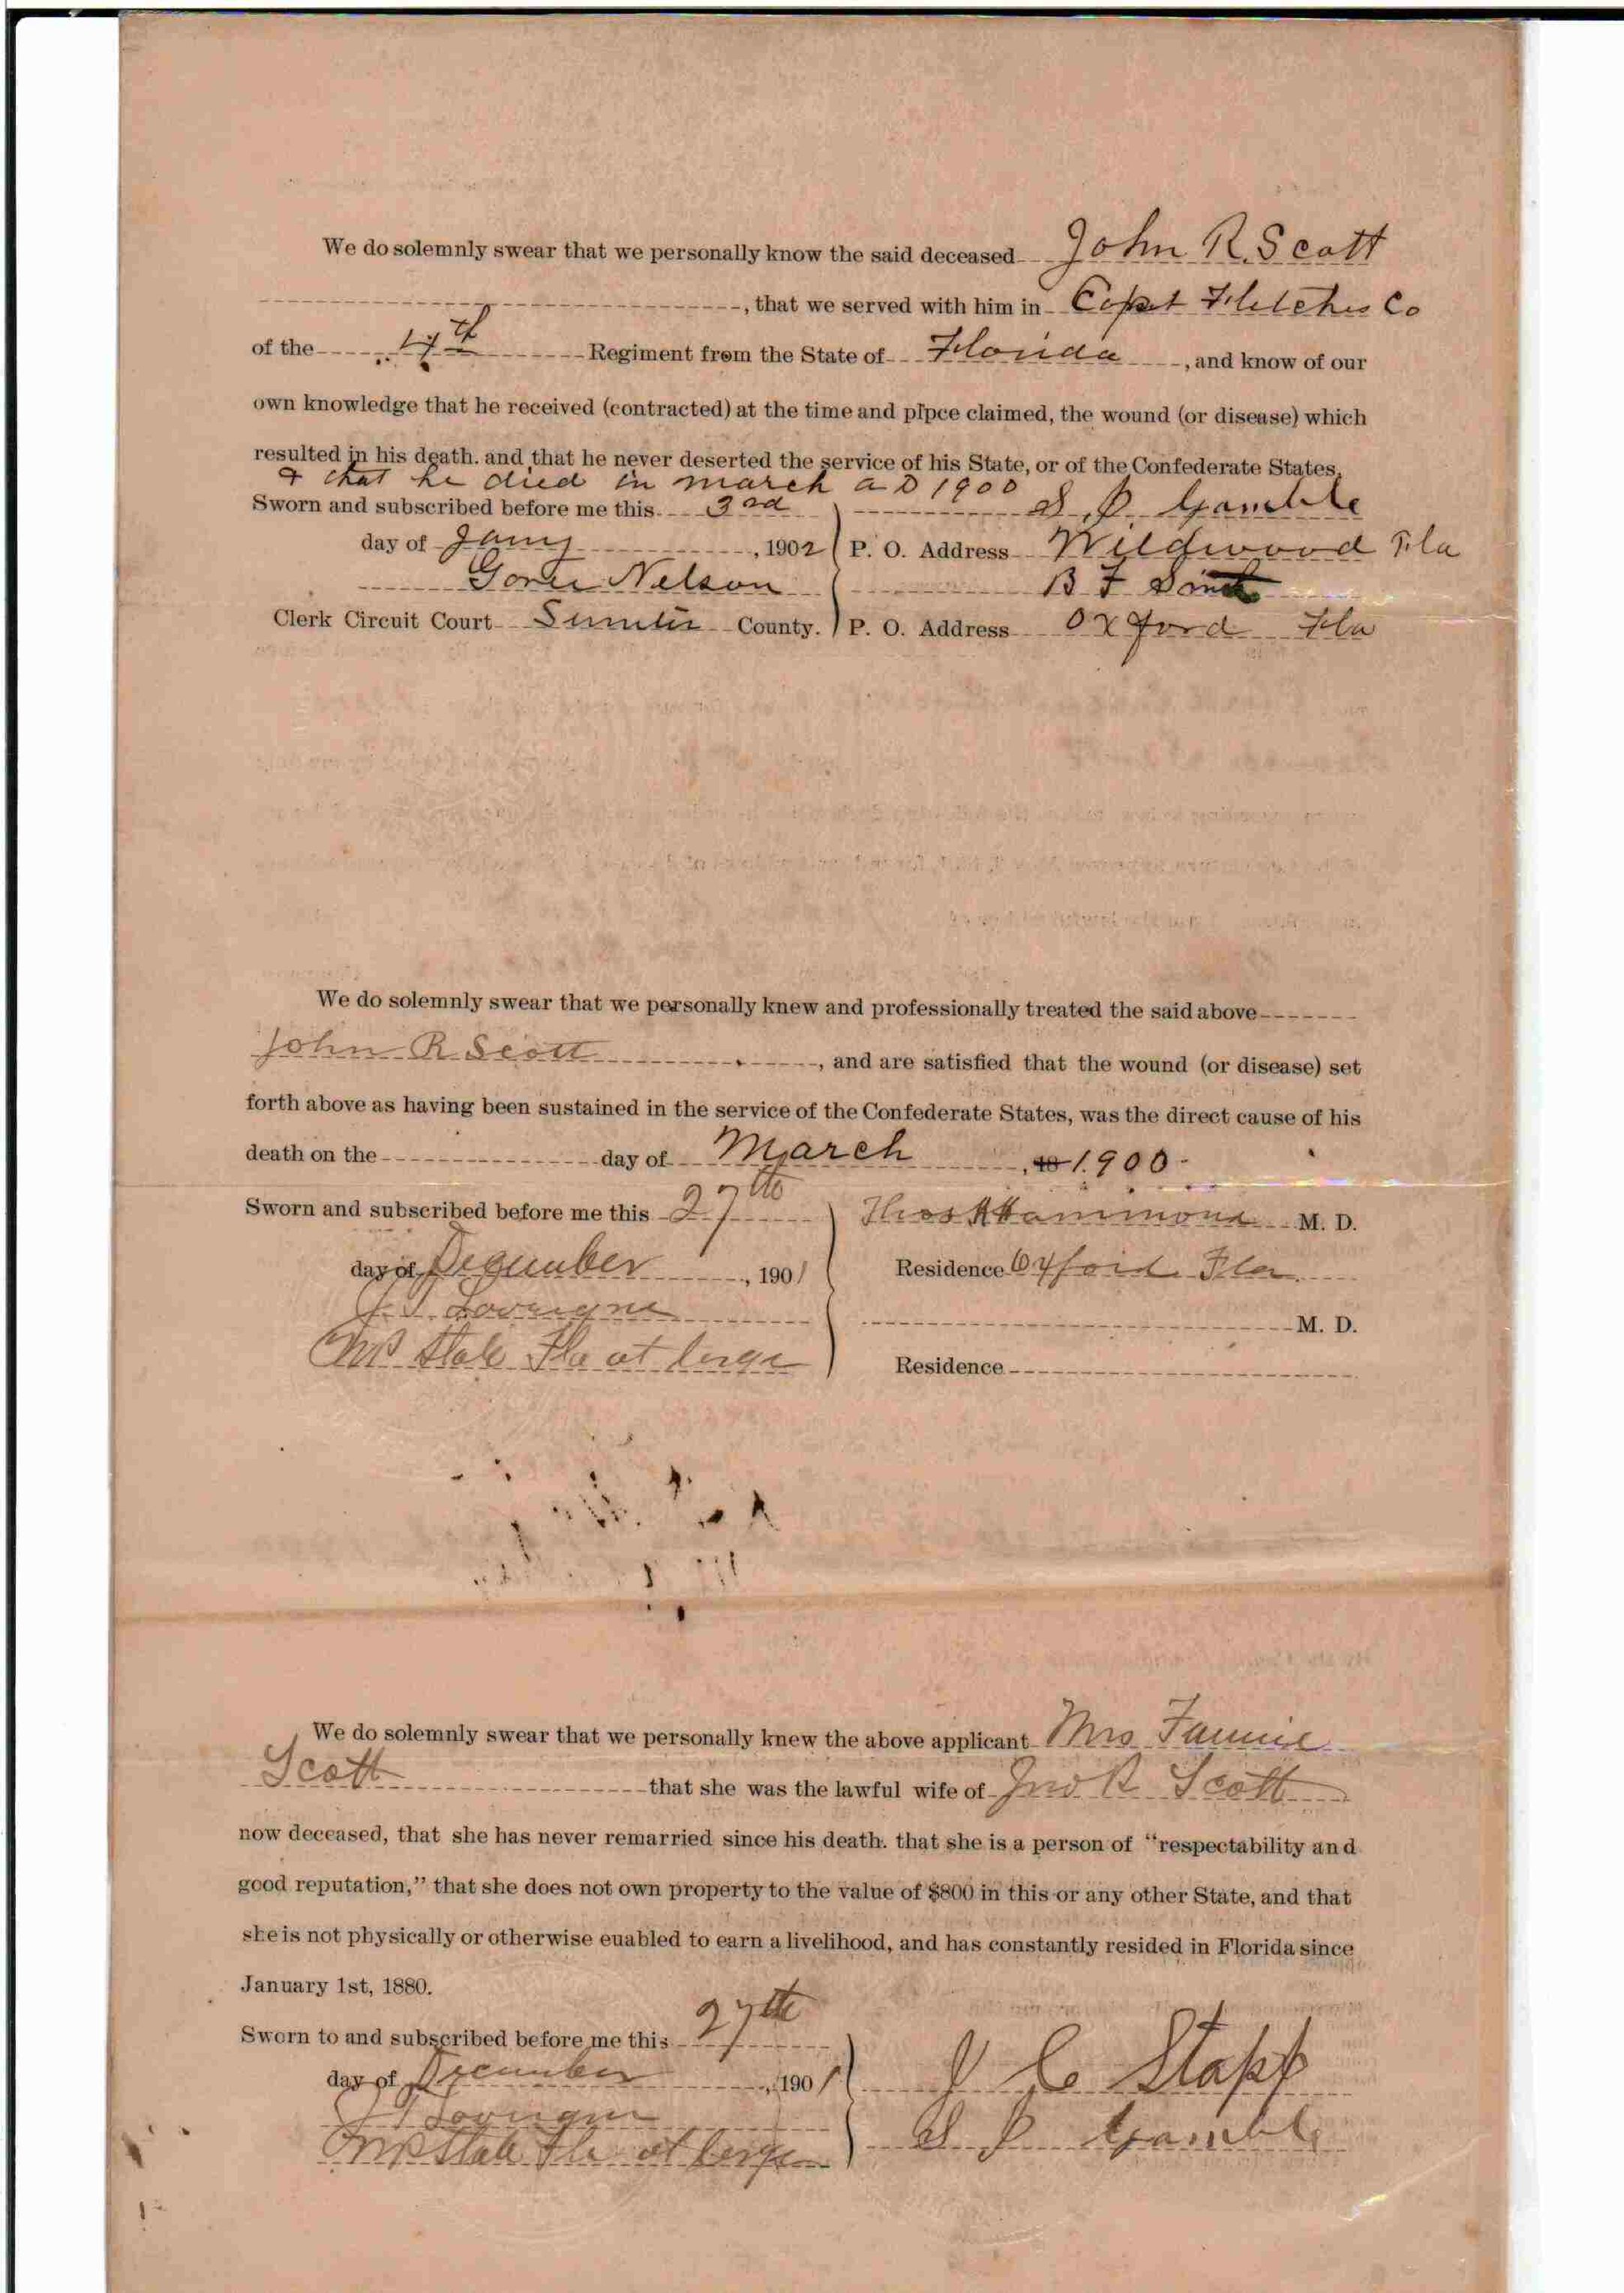 We do solemnly swear that we personally know the said deceased John R. Scott
, that we served with him in Capt Fletches Co
of the Regiment from the State of Florida, and know of our
own knowledge that he received (contracted) at the time and plpce claimed, the wound (or disease) which
resulted in his death. and that he never deserted the service of his State, or of the Confederate States.
& that he died in march a D 1900
Sworn and subscribed before me this 3rd S. P. Gamble
day of Jany, 1902 P. O. Address Wildwood Fla
Nelson B F Smith
Clerk Circuit Court Sumter County. P. O. Address Oxford Fla
We do solemnly swear that we personally knew and professionally treated the said above
John R Scott, and are satisfied that the wound (or disease) set
forth above as having been sustained in the service of the Confederate States, was the direct cause of his
death on the day of March, 18 1900
Sworn and subscribed before me this 27th Thos H Hammond M. D.
day of December, 1901 Residence Oxford Fla.
M. D.
NP State Fla at large Residence
We do solemnly swear that we personally knew the above applicant Mrs Fannie
Scott that she was the lawful wife of Jno R Scott
now deceased, that she has never remarried since his death. that she is a person of "respectability and
good reputation," that she does not own property to the value of $800 in this or any other State, and that
she is not physically or otherwise euabled to earn a livelihood, and has constantly resided in Florida since
January 1st, 1880.
Sworn to and subscribed before me this 27th
day of December, 1901 J C Stapp
S P Gamble
NP State Fla at large